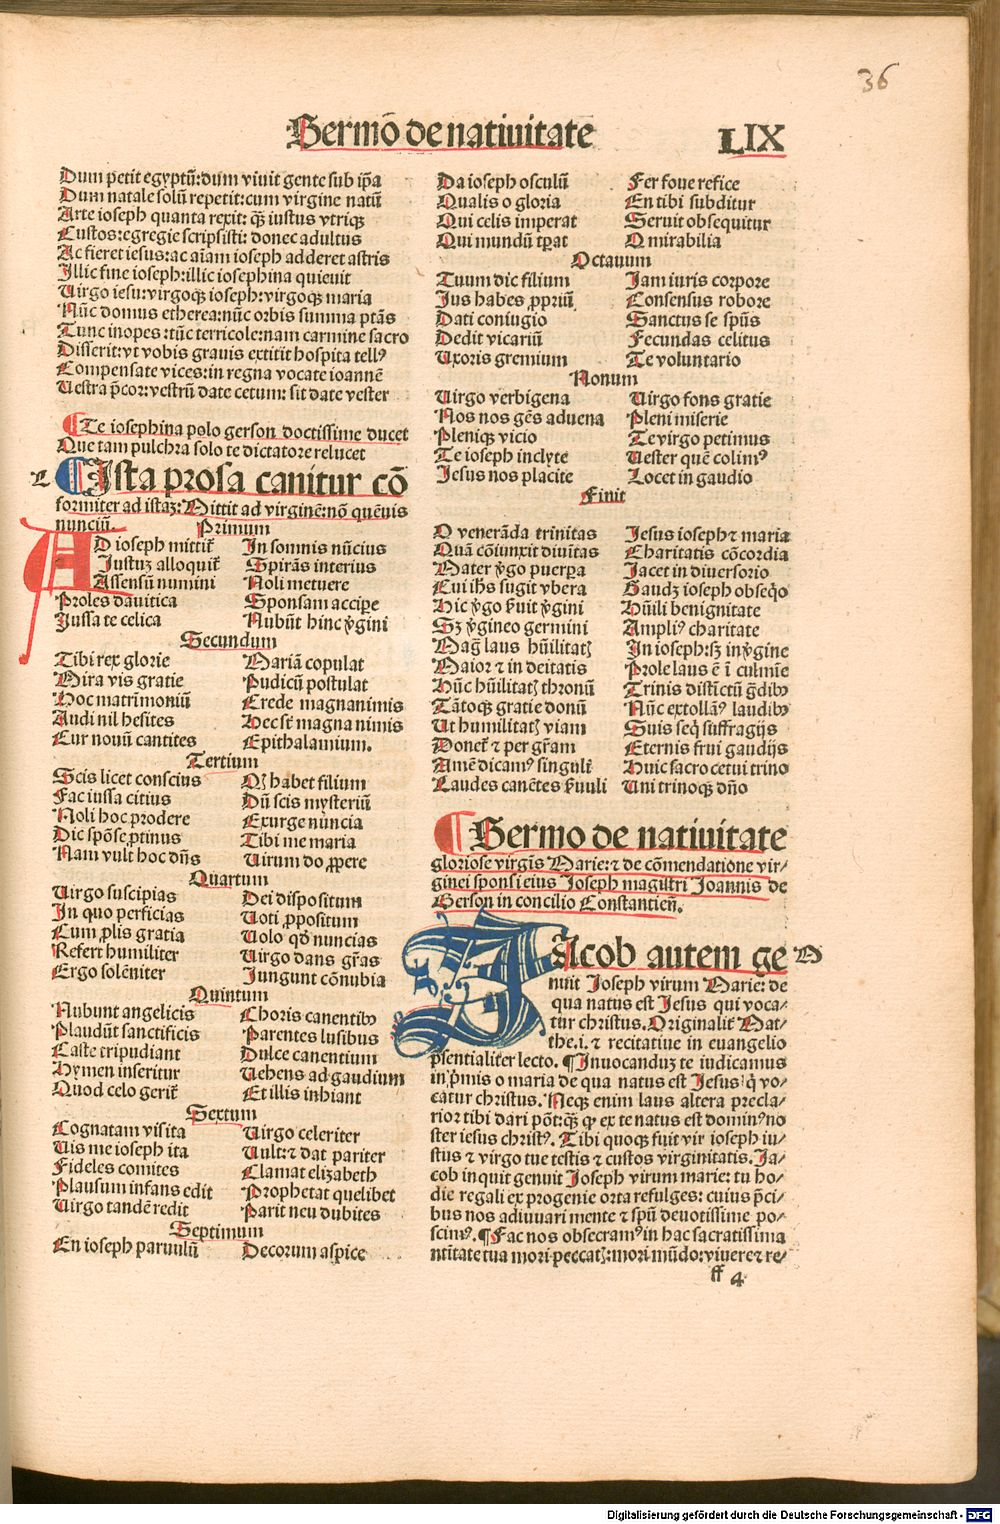 36
Sermo de natiuitate LIX
Dum petit egyptū: dum viuit gente sub ip̄a
Dum natale solū repetit: cum virgine natū
Arte ioseph quanta rexit: q̄ȝ iustus vtriqȝ
Custos: egregie scripsisti: donec adultus
Ac fieret iesus: ac aīam ioseph adderet astris
Illic fine ioseph: illic iosephina quieuit
Uirgo iesu: virgoqȝ ioseph: virgoqȝ maria
Nūc domus etherea: nūc orbis summa ptās
Tunc inopes: tūc terricole: nam carmine sacro
Disserit: vt vobis grauis extitit hospita tell⁹
Compensate vices: in regna vocate ioannē
Uestra p̄cor: vestrū date cetum: sit date vester
¶ Te iosephina polo gerson doctissime ducet
Que tam pulchra solo te dictatore relucet
L ¶ Ista prosa canitur cō
formiter ad istaȝ: Mittit ad virginē: nō quēuis
nunciū. Primum
AD ioseph mittit̄ In somnis nūcius
Iustuȝ alloquit̄ Spirās interius
Assensū numini Noli metuere
Proles dauitica Sponsam accipe
Iussa te celica Nubūt hinc v̄gini
Secundum
Tibi rex glorie Mariā copulat
Mira vis gratie Pudicū postulat
Hoc matrimoniū Crede magnanimis
Audi nil hesites Hec sūt magna nimis
Cur nouū cantites Epithalamium.
Tertium
Scis licet conscius Qȝ habet filium
Fac iussa citius Dū scis mysteriū
Noli hoc prodere Exurge nuncia
Dic spōse ꝓtinus Tibi me maria
Nam vult hoc dn̄s Uirum do ꝓpere
Quartum
Uirgo suscipias Dei dispositum
In quo perficias Uoti ꝓpositum
Cum ꝓlis gratia Uolo qd̄ nuncias
Refert humiliter Uirgo dans gr̄as
Ergo solēniter Iungunt cōnubia
Quintum
Nubunt angelicis Choris canentibȝ
Plaudūt sanctificis Parentes lusibus
Caste tripudiant Dulce canentium
Hymen inseritur Uehens ad gaudium
Quod celo gerit̄ Et illis inhiant
Sextum
Cognatam visita Uirgo celeriter
Uis me ioseph ita Uult: ⁊ dat pariter
Fideles comites Clamat elizabeth
Plausum infans edit Prophetat quelibet
Uirgo tandē redit Parit neu dubites
Septimum
En ioseph paruulū Decorum aspice
Da ioseph osculū Fer foue refice
Qualis o gloria En tibi subditur
Qui celis imperat Seruit obsequitur
Qui mundū tꝑat O mirabilia
Octauum
Tuum dic filium Iam iuris corpore
Ius habes ꝓpriū Consensus robore
Dati coniugio Sanctus se spūs
Dedit vicariū Fecundas celitus
Uxoris gremium Te voluntario
Nonum
Uirgo verbigena Uirgo fons gratie
Nos nos gēs aduena Pleni miserie
Pleniqȝ vicio Te virgo petimus
Te ioseph inclyte Uester quē colim⁹
Iesus nos placite Locet in gaudio
Finit
O venerāda trinitas Iesus ioseph ⁊ maria
Quā cōiunxit diuītas Charitatis cōcordia
Mater v̄go puerꝑa Iacet in diuersorio
Cui ih̄s sugit vbera Gaudȝ ioseph obseq̄o
Hic v̄go ẜuit v̄gini Hūili benignitate
Sȝ v̄gineo germini Ampli⁹ charitate
Maḡ laus hūilitatȝ In ioseph: sȝ in v̄gine
Maior ⁊ in deitatis Prole laus ē ī culmīe
Hūc hūilitatȝ thronū Trinis distīctū ḡdibȝ
Tātoqȝ gratie donū Nūc extollām⁹ laudibȝ
Ut humilitatȝ viam Suis seq̄ suffragijs
Donet̄ ⁊ per gr̄am Eternis frui gaudijs
Amē dicam⁹ singuli Huic sacro cetui trino
Laudes canētes ẜuuli Uni trinoqȝ dn̄o
¶ Sermo de natiuitate
gloriose virgīs Marie: ⁊ de cōmendatione vir/
ginei sponsi eius Ioseph magistri Ioannis de
Gerson in concilio Constantien̄.
IAcob autem ge
nuit Ioseph virum Marie: de
qua natus est Iesus qui voca/
tur christus. Originalit̄ Mat/
the.i. ⁊ recitatiue in euangelio
p̄sentialiter lecto. ¶ Inuocanduȝ te iudicamus
in p̄mis o maria de qua natus est Iesus q̄ vo/
catur christus. Neqȝ enim laus altera precla/
rior tibi dari pōt: q̄ȝ ꝙ ex te natus est domin⁹ no
ster iesus christ⁹. Tibi quoqȝ fuit vir ioseph iu/
stus ⁊ virgo tue testis ⁊ custos virginitatis. Ia/
cob inquit genuit Ioseph virum marie: tu ho/
die regali ex progenie orta refulges: cuius p̄ci/
bus nos adiuuari mente ⁊ spū deuotissime po/
scim⁹. ¶ Fac nos obsecram⁹ in hac sacratissima
natiuitate tua mori peccatȝ: mori mūdo: viuere ⁊ re/
ff 4
Digitalisierung gefördert durch die Deutsche Forschungsgemeinschaft - DFG